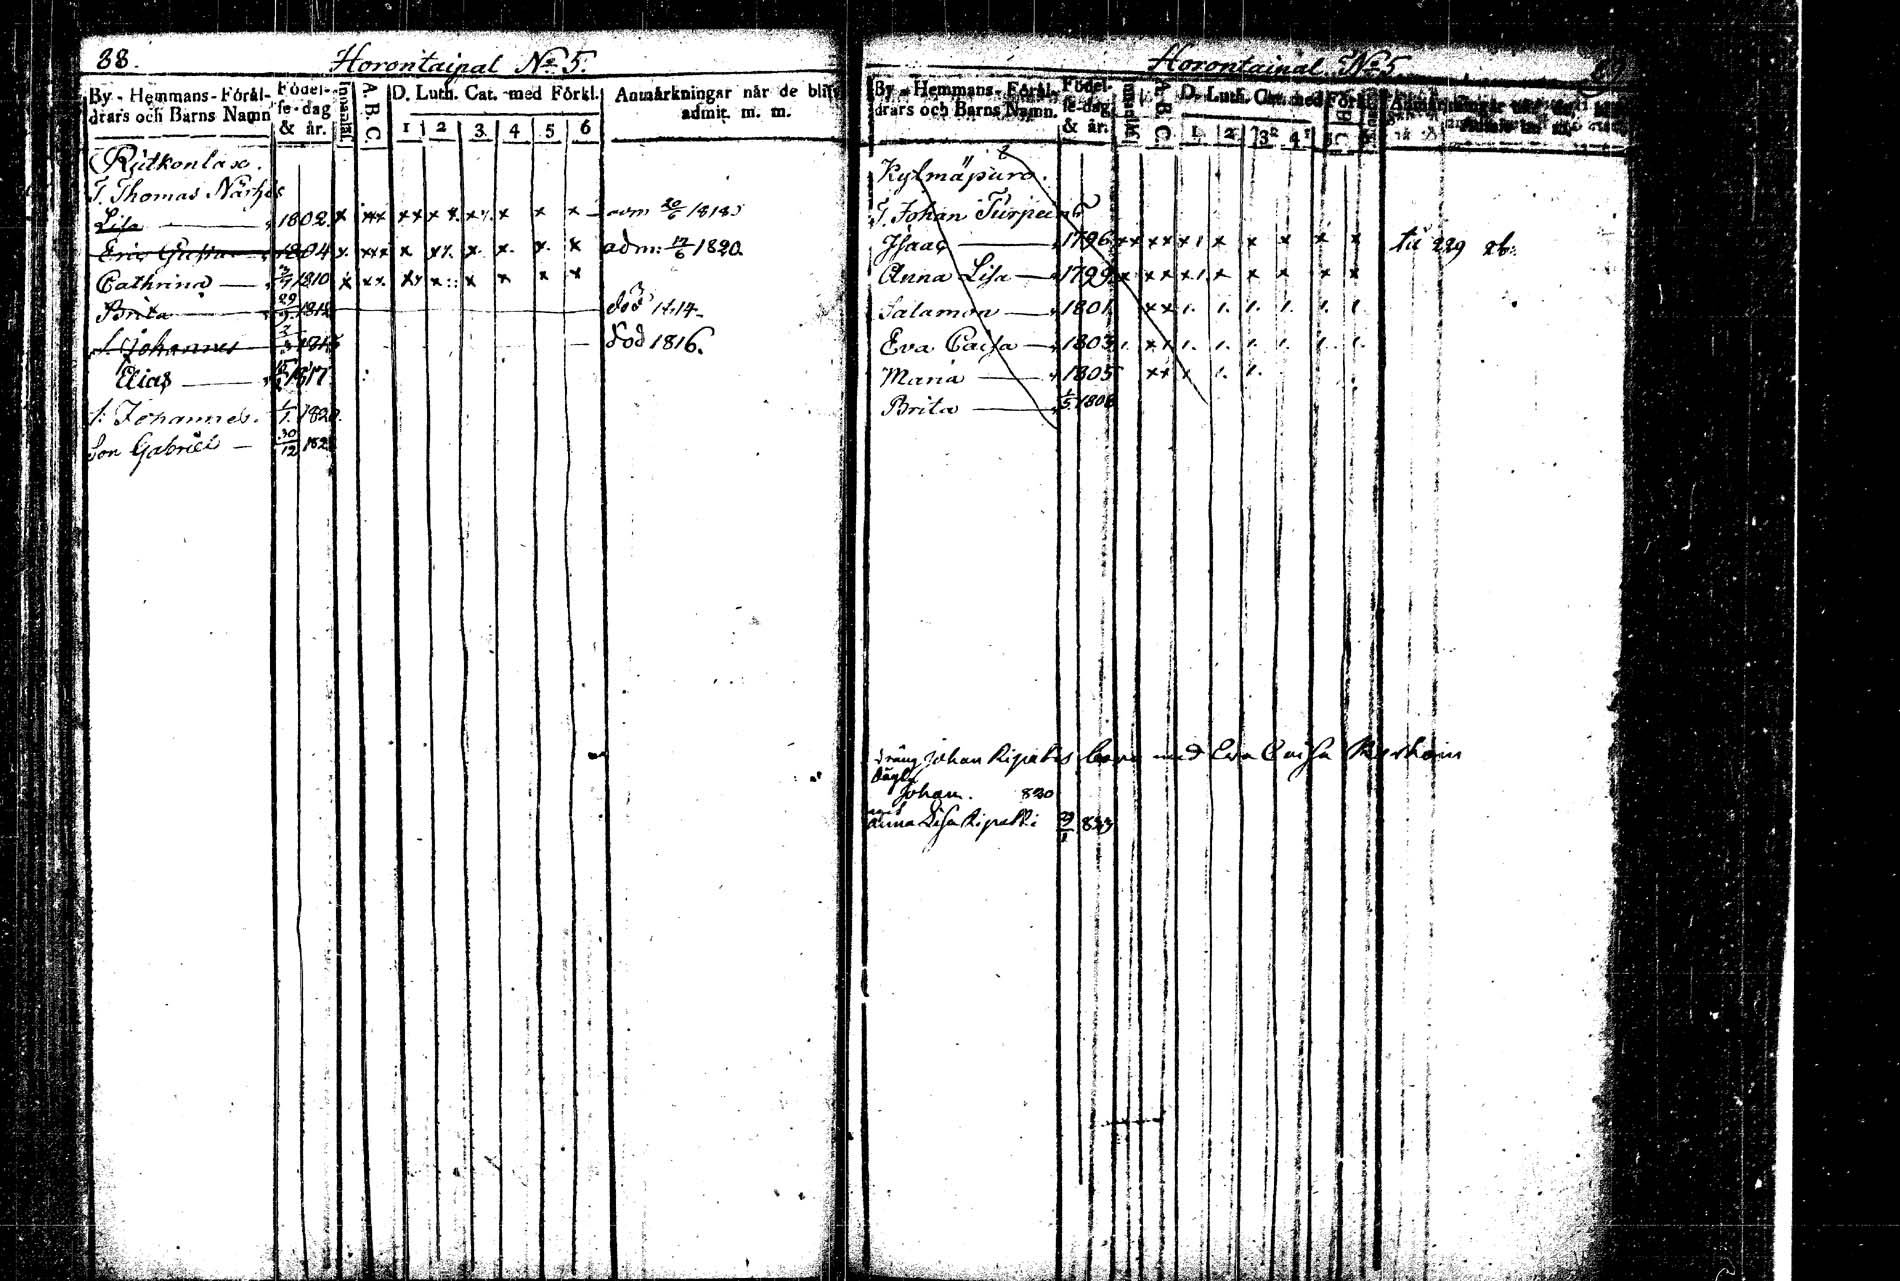 88.
Horontaipal No 5.
By - Hemmans - Föräl-
drars och Barns Namn
Födel-
se-dag
& år.
Innanläs.
A. B. C.
D. Luth. Cat. med Förkl.
1 2 3 4 5 6
Anmärkningar när de blifv
admit. m. m.
Rutkonlax.
T. Thomas
Lisa 1802. x xxx xx x x. x x x x adm 20/6 1818
Eric 1804 x. xxx x xx. x. x. x. x adm: 17/6 1820.
Cathrina 1810 x xx. xx x x x x x
Brita 29/9 1812 död 1814
Johannes död 1816.
Elias 1817
s. Johannes. 1/1 1820.
Son Gabriel 30/12 182
Horontaipal No 5.
By - Hemmans - Föräl-
drars och Barns Namn.
Födel-
se-dag
& år.
A. B. C.
D. Luth. Cat. med Förkl.
1 2 3 4
Kylmäpuro.
T. Johan Turpein
Isaac 1796 xx xx x 1 x x x x x till 229 sb.
Anna Lisa 1799 x xx x 1. x x x x x
Salamon 1801 xx 1. 1. 1. 1. 1. 1.
Eva Caisa 1803 1. x 1 1. 1. 1. 1. 1. 1.
Maria 1805 xx 1. 1.
Brita 1/5 1808
dräng Johan Ripatis barn med Eva Caisa
Johan. 820
Anna Lisa Ripatti 833